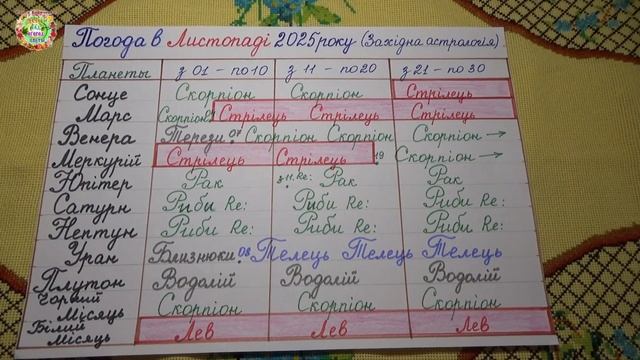 Погода в Листопаді 2025 року (Західна астрологія)
Планеты з 01 - по 10 з 11 - по 20 з 21 - по 30
Сонце Скорпіон Скорпіон Стрілець
Марс Скорпіон Стрілець Стрілець Стрілець
Венера Терези 07 Скорпіон Скорпіон Скорпіон →
Меркурій Стрілець Стрілець 19 Скорпіон →
Юпітер Рак з 11. Re: Рак Рак
Сатурн Риби Re: Риби Re: Риби Re:
Нептун Риби Re: Риби Re: Риби Re:
Уран Близнюки. 08 Телець Телець Телець
Плутон Водолій Водолій Водолій
Чорний Місяць Скорпіон Скорпіон Скорпіон
Білий Місяць Лев Лев Лев